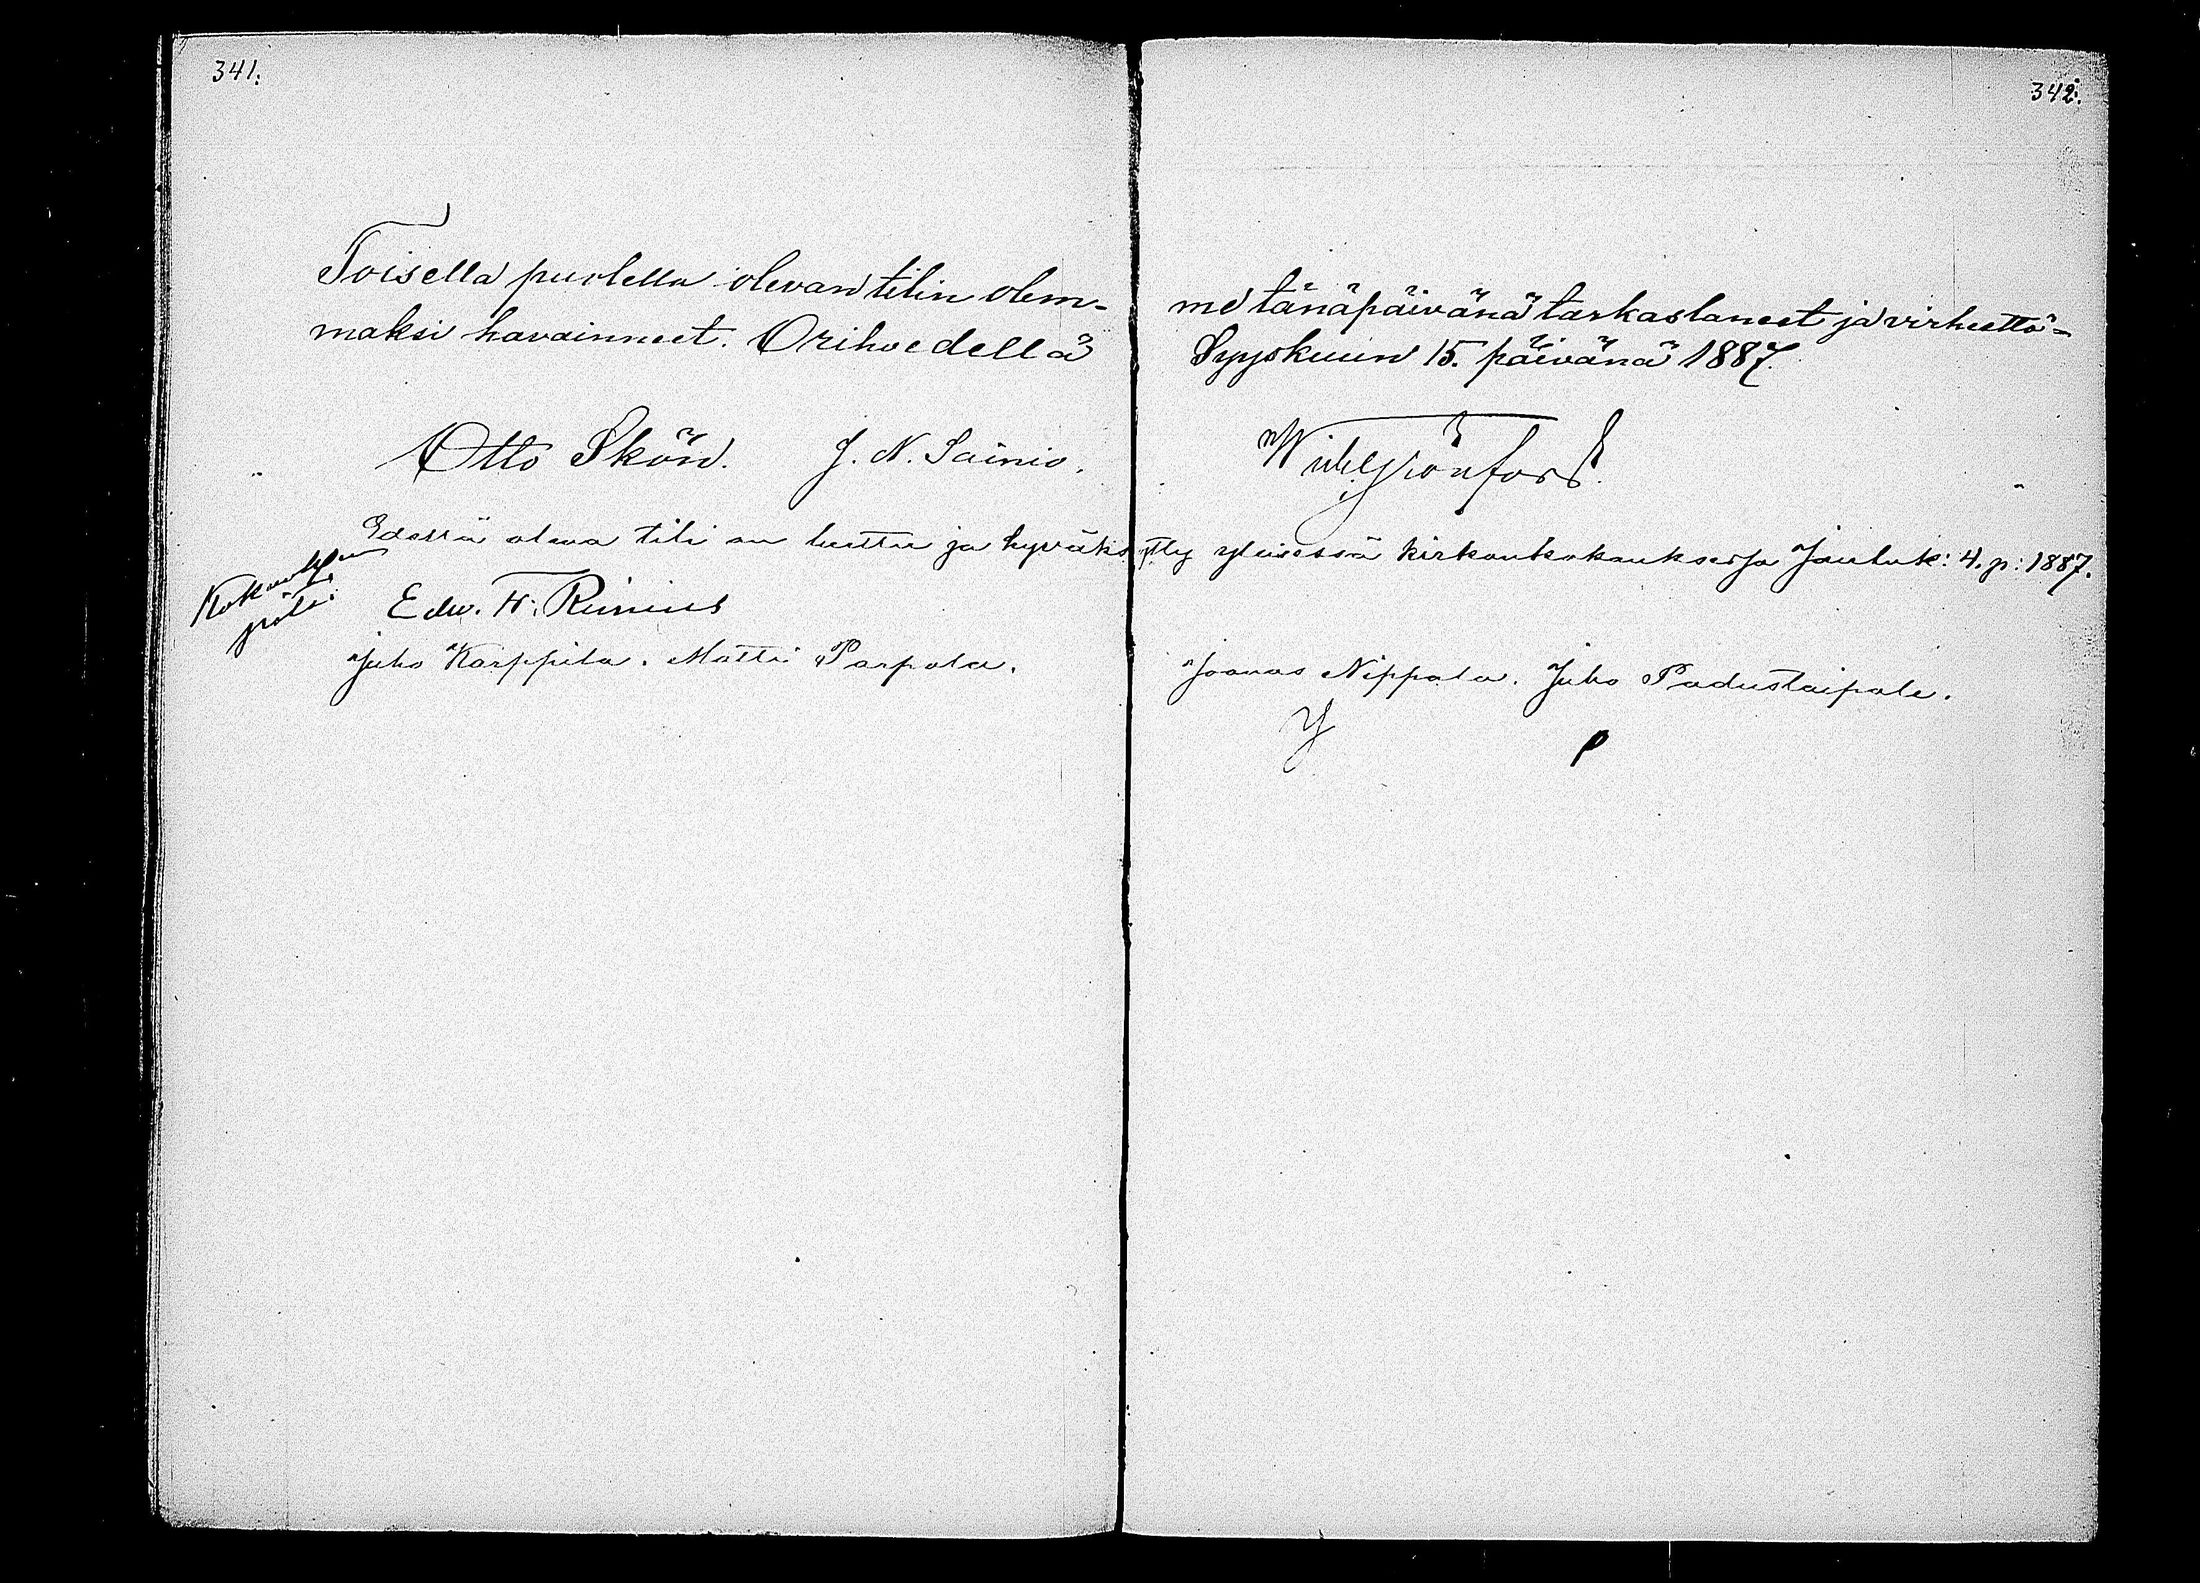 341.
342.
Toisella puolella olevan tilin olem-
me tänäpäivänä tarkastaneet ja virheettö-
maksi havainneet. Orihvedellä
Syyskuun 15. päivänä 1887.
Otto Skön. J. N. Sainio.
Wilh. Grönfors.
Edessä oleva tili on luettu ja hyväksytty yleisessä kirkonkokouksessa Jouluk: 4. p: 1887.
Kokouksen
Edw. H:
Juho Karppila. Matti Parpola.
Joonas Nippala. Juho Padustaipale.
Y P